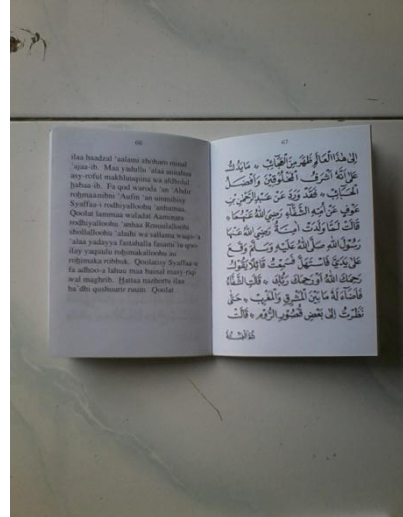 66
ilaa haadzal 'aalami dhoharo minal
'ajaa-ib. Maa yadullu 'alaa annahaa
asy-roful makhluuqiina wa afdholul
habaa-ib. Fa qod waroda 'an 'Abdir
rohmaanibni 'Aufin 'an ummihisy
Syaffaa-i rodhiyalloohu 'anhumaa.
Qoolat lammaa waladat Aaminatu
rodhiyalloohu 'anhaa Rosuulalloohi
shollalloohu 'alaihi wa sallama waqo-'a
'alaa yadayya fastahalla fasami'tu qoo-
ilay yaquulu rohimakalloohu au
rohimaka robbuk. Qoolatisy Syaffaa-u
fa adhoo-a lahuu maa bainal masy-riqi
wal maghrib. Hattaa nazhortu ilaa
ba'dhi qushuurir ruum. Qoolat
67
إِلَى هٰذَا الْعَالَمِ ظَهَرَ مِنَ الْعَجَائِبِ ۞ مَا يَدُلُّ
عَلَى أَنَّهُ أَشْرَفُ الْمَخْلُوقِينَ وَأَفْضَلُ
الْحَبَائِبِ ۞ فَقَدْ وَرَدَ عَنْ عَبْدِ الرَّحْمٰنِ بْنِ
عَوْفٍ عَنْ أُمِّهِ الشَّفَّاءِ رَضِيَ اللهُ عَنْهُمَا ۞
قَالَتْ لَمَّا وَلَدَتْ آمِنَةُ رَضِيَ اللهُ عَنْهَا
رَسُولَ اللهِ صَلَّى اللهُ عَلَيْهِ وَسَلَّمَ وَقَعَ
عَلَى يَدَيَّ فَاسْتَهَلَّ فَسَمِعْتُ قَائِلًا يَقُولُ
رَحِمَكَ اللهُ أَوْ رَحِمَكَ رَبُّكَ ۞ قَالَتِ الشَّفَّاءُ
فَأَضَاءَ لَهُ مَا بَيْنَ الْمَشْرِقِ وَالْمَغْرِبِ ۞ حَتَّى
نَظَرْتُ إِلَى بَعْضِ قُصُورِ الرُّومِ ۞ قَالَتْ